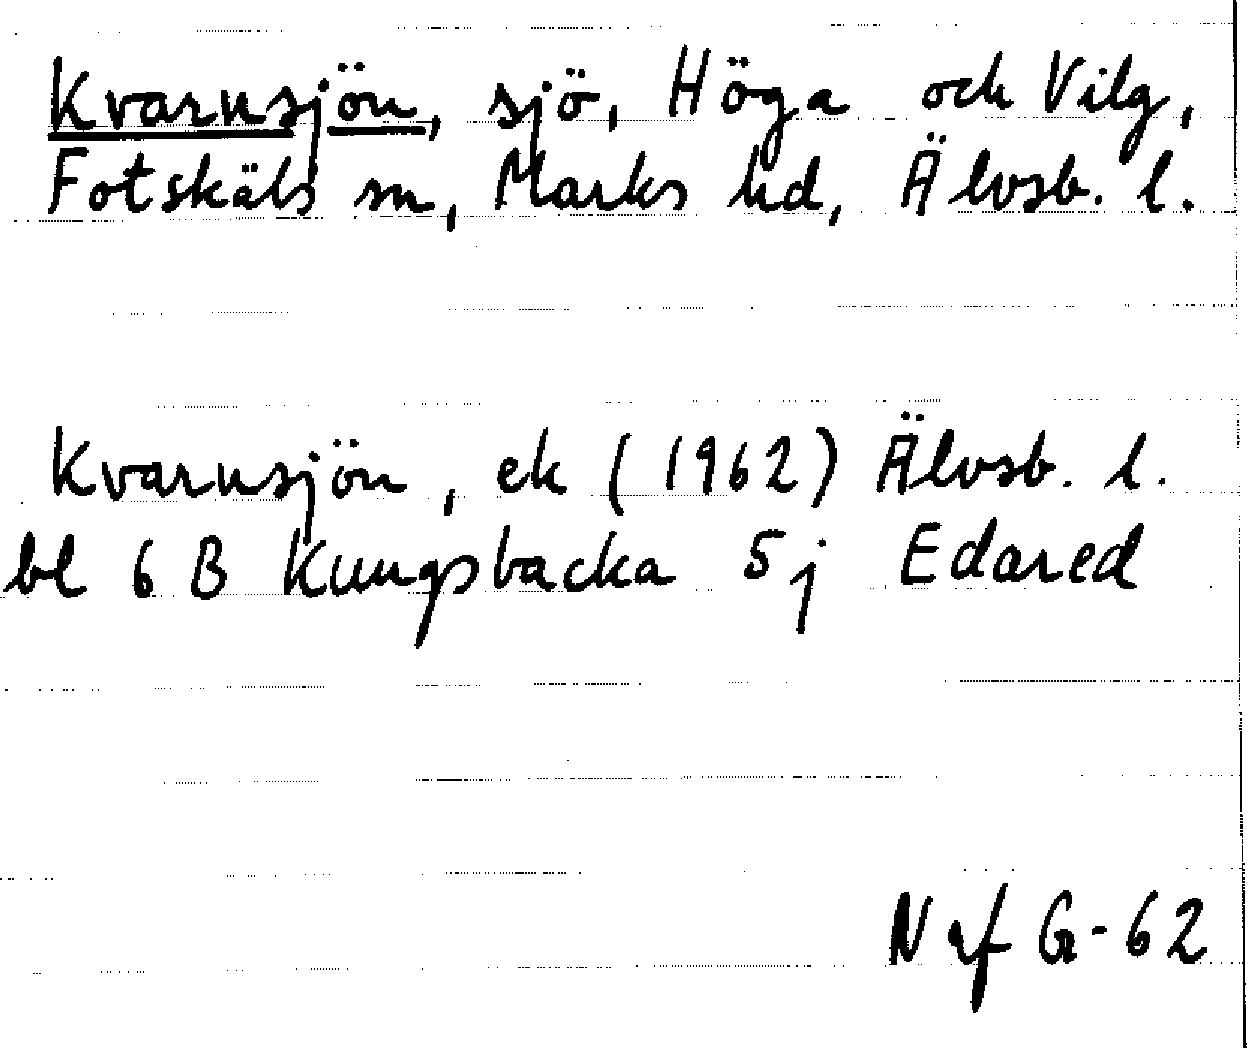 Kvarnsjön, sjö, Höga och Vilg,
Fotskäls sn, Marks hd, Älvsb. l.
Kvarnsjön, ek (1962) Älvsb. l.
bl 6 B Kungsbacka 5 j Edared
G-62